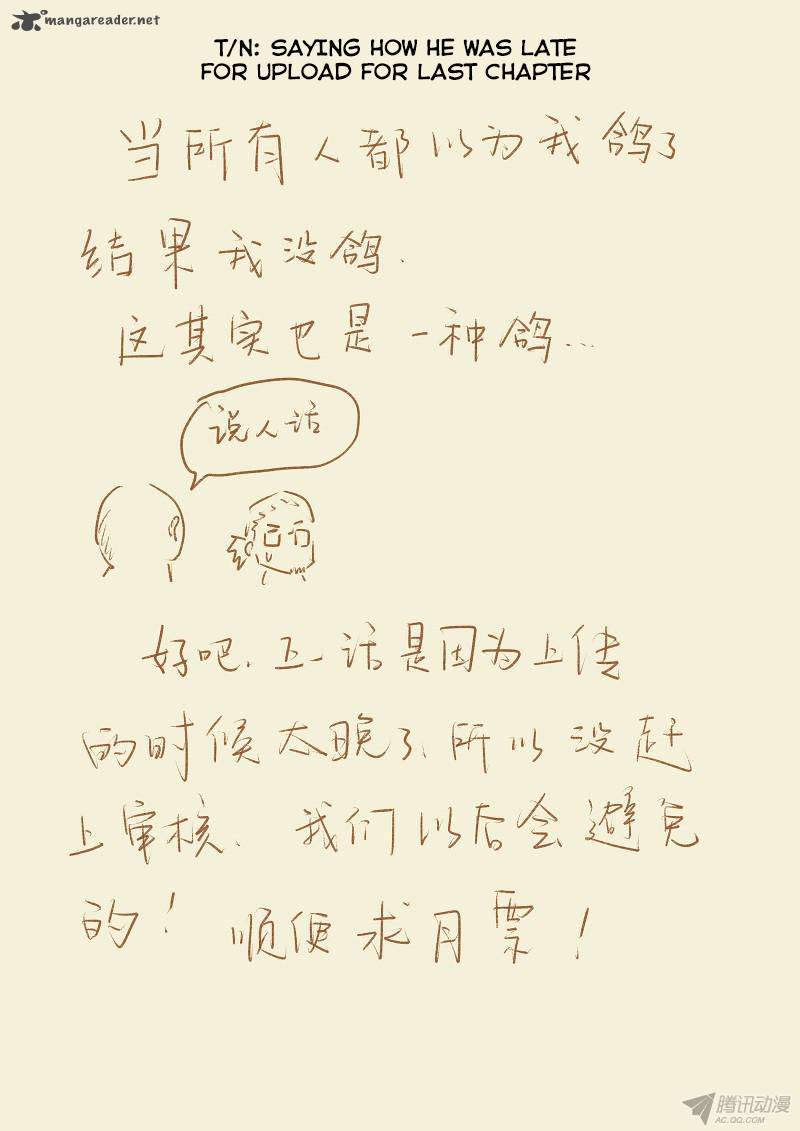 mangareader.net
T/N: SAYING HOW HE WAS LATE
FOR UPLOAD FOR LAST CHAPTER
当所有人都以为我鸽了
结果我没鸽.
这其实也是一种鸽...
说人话
好吧、上一话是因为上传
的时候太晚了、所以没赶
上审核、我们以后会避免
的！顺便求月票！
腾讯动漫
AC.QQ.COM